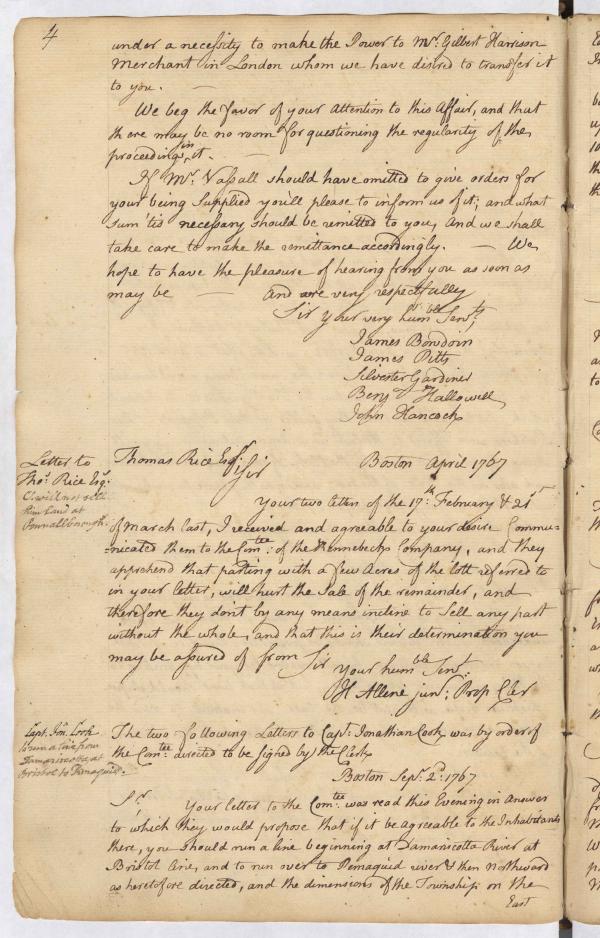 4
under a necessity to make the Power to Mr. Gilbert Harrison
Merchant in London whom we have disired to transfer it
to you. —
We beg the favor of your Attention to this Affair, and that
there may be no room for questioning the regularity of the
proceedings in it. —
If Mr. Vassall should have omitted to give orders for
your being Supplied you'll please to inform us of it; and what
sum 'tis necessary should be remitted to you, And we shall
take care to make the remittance accordingly. — We
hope to have the pleasure of hearing from you as soon as
may be — And are very respectfully
Sir Your very humble Servts,
James Bowdoin
James Pitts
Silvester Gardiner
Benj Hallowell
John Hancock
Letter to
Thos. Rice Esqr.
C. will not sell
him Land at
Pownallborough.
Thomas Rice Esqr. Boston April 1767
Sir
Your two letters of the 17th. February & 21st
of March last, I received and agreable to your desire Commu-
nicated them to the Comtee: of the Kennebeck Company, and they
apprehend that parting with a few Acres of the lott referred to
in your letter, will hurt the Sale of the remainder, and
therefore they don't by any means incline to Sell any part
without the whole, and that this is their determination you
may be assured of from Sir
Your humble Servt.
H Allene junr. Prop Cler
Capt. Jon. Cook
to run a line from
Damariscotta at
Bristol to Pemaquid.
The two following Letters to Capt. Jonathan Cook was by order of
the Comtee. directed to be signed by the Clerk
Boston Sepr. 2d. 1767
Sr. Your letter to the Comtee. was read this Evening in Answer
to which they would propose that if it be agreeable to the Inhabitants
there, you should run a line beginning at Damariscotta River at
Bristol line, and to run over to Pemaquid river & then Northward
as heretofore directed, and the dimensions of the Township on the
East